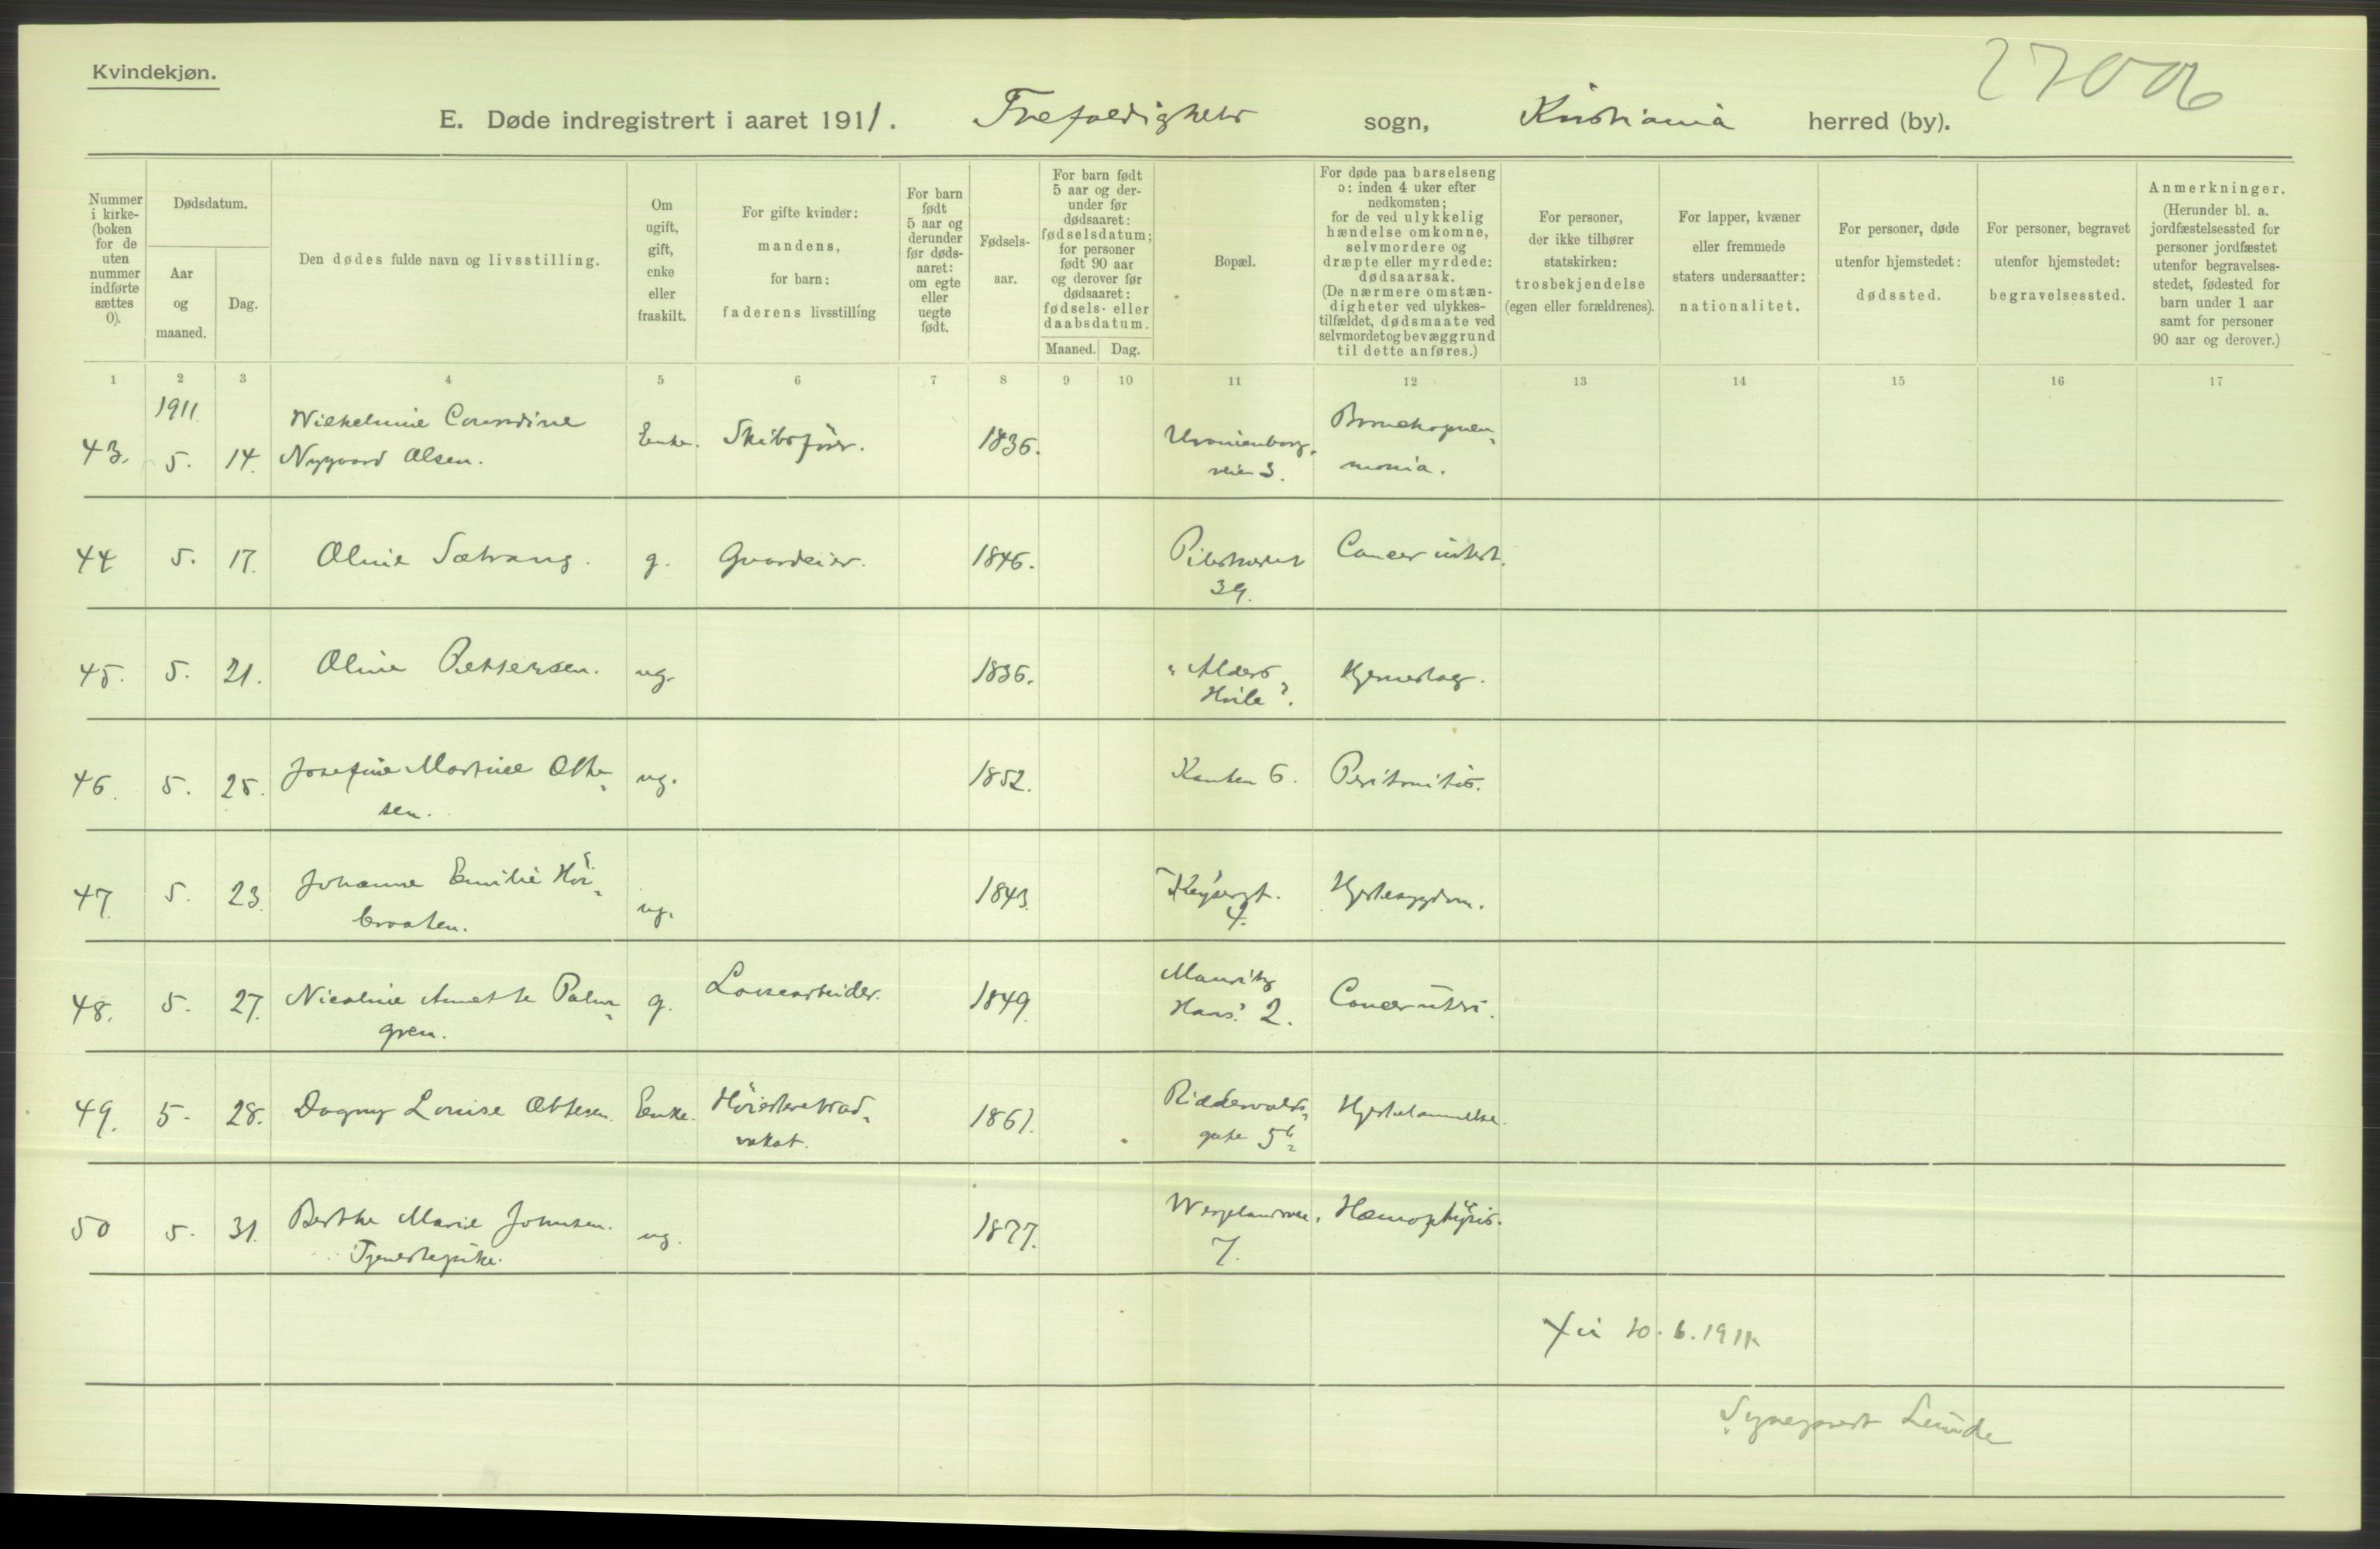 Kvindekjøn.
27006
E. Døde indregistrert i aaret 1911. Trefoldighets sogn, Kristiania herred (by).
Nummer i kirke-(boken for de uten nummer indførte sættes 0).
Dødsdatum.
Aar og maaned.
Dag.
Den dødes fulde navn og livsstilling.
Om ugift, gift, enke eller fraskilt.
For gifte kvinder: mandens, for barn: faderens livsstilling
For barn født 5 aar og derunder før døds-aaret: om egte eller uegte født.
Fødsels-aar.
For barn født 5 aar og der-under før dødsaaret: fødselsdatum; for personer født 90 aar og derover før dødsaaret: fødsels- eller daabsdatum.
Maaned. Dag.
Bopæl.
For døde paa barselseng ɔ: inden 4 uker efter nedkomsten; for de ved ulykkelig hændelse omkomne, selvmordere og dræpte eller myrdede: dødsaarsak. (De nærmere omstæn-digheter ved ulykkes-tilfældet, dødsmaate ved selvmordet og bevæggrund til dette anføres.)
For personer, der ikke tilhører statskirken: trosbekjendelse (egen eller forældrenes).
For lapper, kvæner eller fremmede staters undersaatter: nationalitet.
For personer, døde utenfor hjemstedet: dødssted.
For personer, begravet utenfor hjemstedet: begravelsessted.
Anmerkninger. (Herunder bl. a. jordfæstelsessted for personer jordfæstet utenfor begravelses-stedet, fødested for barn under 1 aar samt for personer 90 aar og derover.)
1 2 3 4 5 6 7 8 9 10 11 12 13 14 15 16 17
1911.
43. 5. 14. Wilhelmine
Nygaard Olsen. Enke. Skibsfører. 1836. Uranienborg-
veien 3. Bronchopneu-
monia.
44 5. 17. Oline Sætrang. g. Gaardeier. 1846. Pilestrædet
39. Cancer intest.
45. 5. 21. Oline Pettersen. ug. 1836. "Alders
Hvile". Hjerneslag.
46. 5. 25. Josefine Martine Otte-
sen. ug. 1852. Kanten 6. Peritonitis.
47. 5. 23. Johanne Emilie Höi-
braaten. ug. 1843. Keysersgt.
4. Hjertesygdom.
48. 5. 27. Nicoline Annette Palm-
gren. g. Løsearbeider. 1849. Mauritz
Hans. 2. Cancer uteri.
49. 5. 28. Dagny Louise Ottesen. Enke. Höiesteretsad-
vokat. 1861. Riddervolds-
gate 5b Hjertelammelse.
50 5. 31. Berthe Marie Johnsen.
Tjenestepike. ug. 1877. Wergelandsvei.
7. Hæmoptysis.
10.6.1911
Sogneprest Lunde